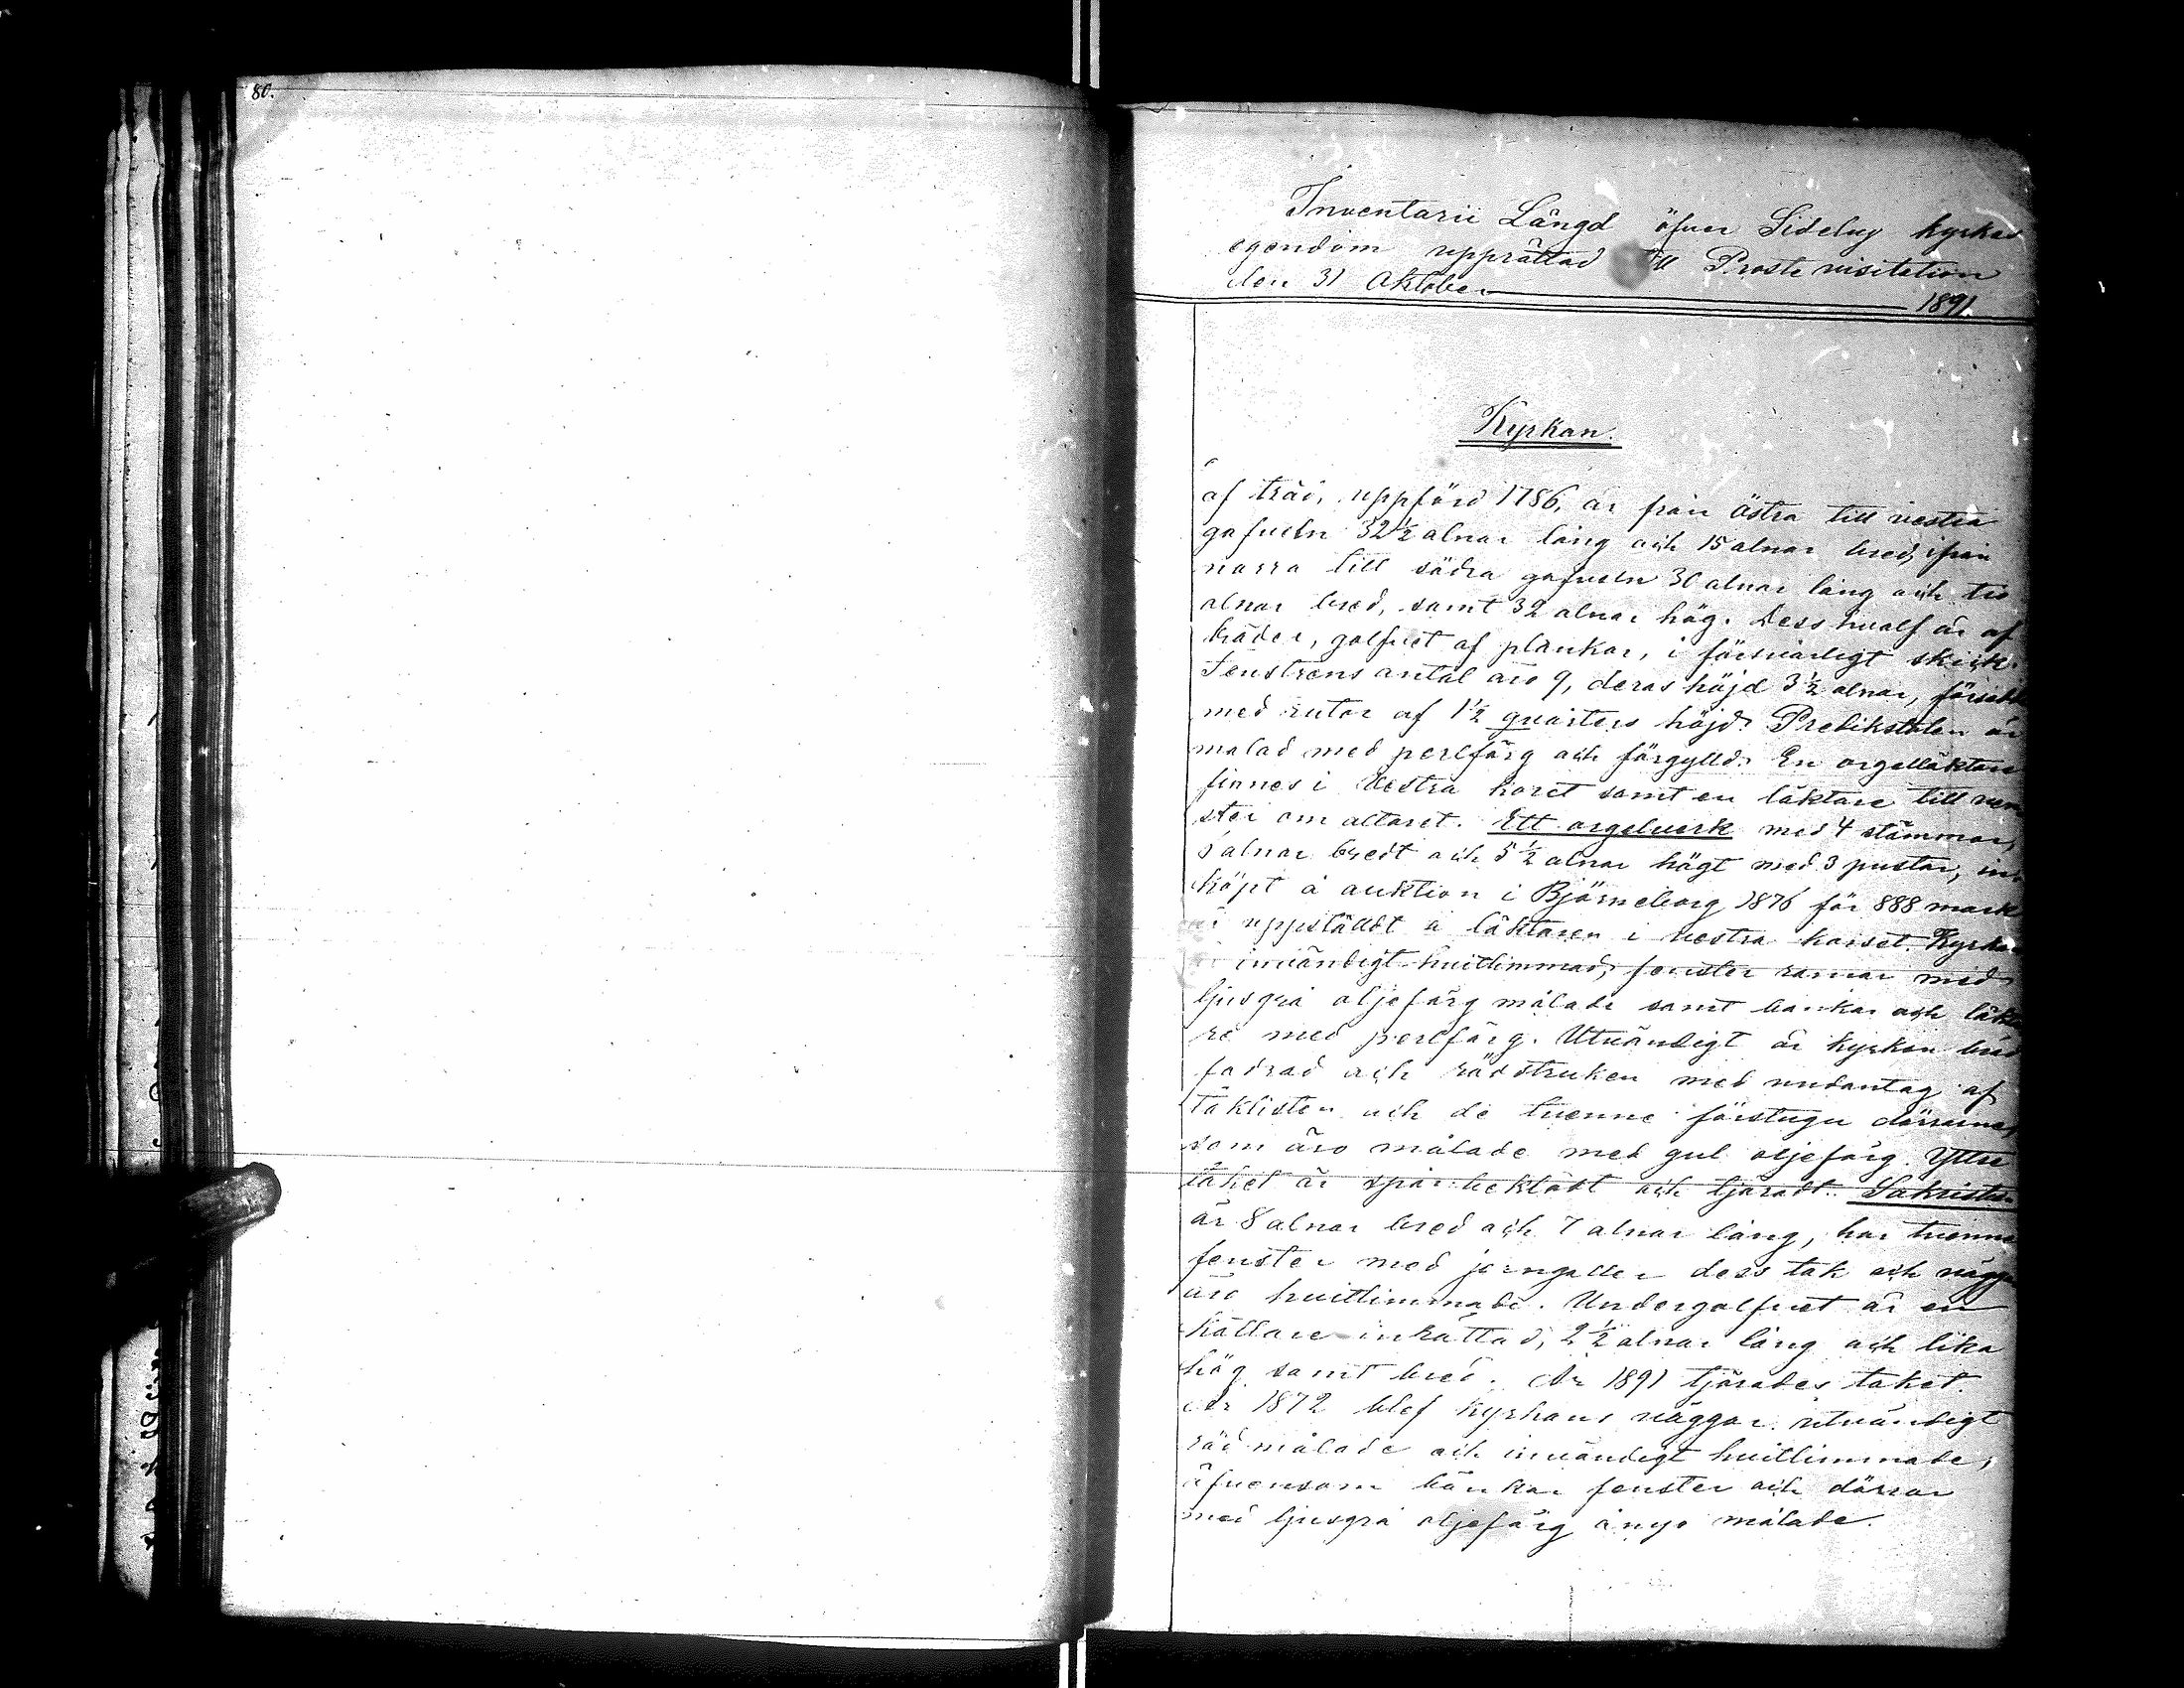 80.
Inventarii Längd öfver Sideby kyrkas
egendom upprättad till Prostevisitation
den 31 Oktober 1891.
Kyrkan.
af träd, uppförd 1786, är från östra till vestra
gafveln 32½ alnar lång och 15 alnar bred, ifrån
norra till södra gafveln 30 alnar lång och tio
alnar bred, samt 32 alnar hög. Dess hvalf är af
bräder, golfvet af plankor, i försvarligt skick.
Fenstrens antal äro 9, deras höjd 3½ alnar, försedda
med rutor af 1½ qvarters höjd. Predikstolen är
målad med perlfärg och förgylld. En orgelläktare
finnes i Vestra koret samt en läktare till ven
ster om altaret. Ett orgelverk med 4 stämmor,
alnar bredt och 5½ alnar högt med 3 pustar, in
köpt å auktion i Björneborg 1876 för 888 mark
är uppstäldt å läktaren i vestra korset. Kyrkan
är invändigt hvitlimmad, fenster ramar med
ljusgrå oljefärg målade samt bänkar och läkta
re med perlfärg. Utvändigt är kyrkan bräd
fodrad och rödstruken med undantag af
taklisten och de tvenne förstugu dörrarne,
som äro målade med gul oljefärg. Yttre
taket är spån beklädt och tjäradt. Sakristian
är 8 alnar bred och 7 alnar lång, har tvenne
fenster med jerngaller dess tak och väggar
äro hvitlimmade. Undergolfvet är en
källare inrättad, 2½ alnar lång och lika
hög samt bred. År 1891 tjärades taket.
År 1872 blef kyrkans väggar utvändigt
rödmålade och invändigt hvitlimmade,
äfvensom bänkar fenster och dörrar
med ljusgrå oljefärg ånyo målade.